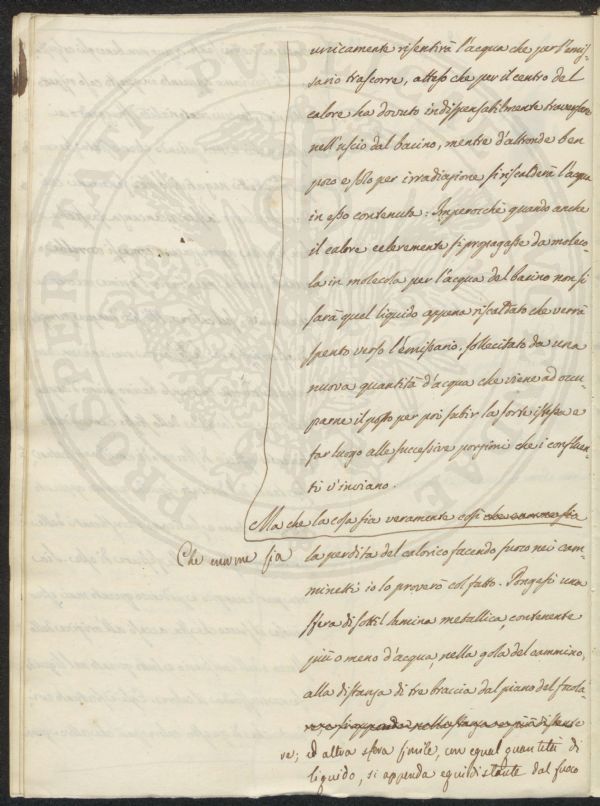 unicamente risentirà l'acqua che per l'emis-
sario trascorre, atteso che per il centro del
calore ha dovuto indispensabilmente traversare
nell'uscio dal bacino, mentre d'altronde ben
poco e solo per irradiazione si riscalderà l'acqua
in esso contenuta: Imperocchè quando anche
il calore celeremente si propagasse da moleco-
la in molecola per l'acqua del bacino non si
sarà quel liquido appena riscaldato che verrà
spento verso l'emissario, sollecitato da una
nuova quantità d'acqua che viene ad occu-
parne il posto per poi subir la sorte istessa e
far luogo alle successive porzioni che i confluen-
ti v'inviano.
Ma che la cosa sia veramente così che somma sia
Che enorme sia la perdita del calorico facendo fuoco nei cam-
minetti io lo proverò col fatto. Pongasi una
sfera di sottil lamina metallica, contenente
più o meno d'acqua, nella gola del cammino,
alla distanza di tre braccia dal piano del focola-
re, e si appenda nella stanza
re; ed altra sfera simile, con egual quantità di
liquido, si appenda equidistante dal fuoco
PROSPERITATI PVBLICAE